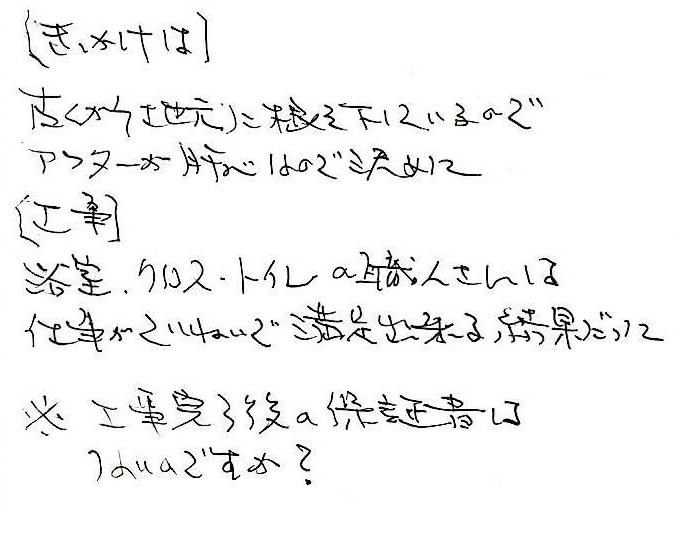 [きっかけは]
古くから地元に根を下しているので
アフターが肝心なので決めた
[工事]
浴室.クロス・トイレの職人さんは
仕事がていねいで満足出来る結果だった
※ 工事完了後の保証書は
ないのですか？